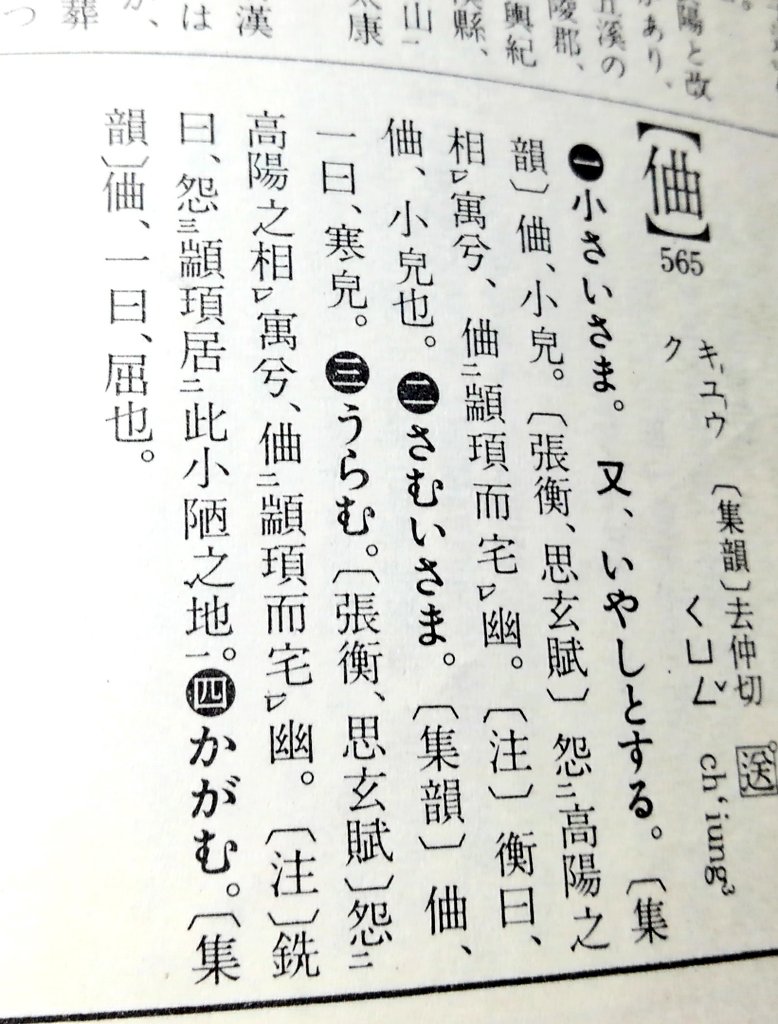 陽と改
があり、
溪の
陵郡、
輿紀
縣、
山㆒
太康
漢
は
葬
つ
【㑋】565
キユウ
ク
〔集韻〕去仲切 送
ㄑㄩㄥˇ ch‘iung³
❶小さいさま。又、いやしとする。〔集
韻〕㑋、小皃。〔張衡、思玄賦〕怨㆓高陽之
相㆑寓兮、㑋㆓顓頊而宅㆑幽。〔注〕衡曰、
㑋、小皃也。❷さむいさま。〔集韻〕㑋、
一曰、寒皃。❸うらむ。〔張衡、思玄賦〕怨㆓
高陽之相㆑寓兮、㑋㆓顓頊而宅㆑幽。〔注〕銑
曰、怨㆘顓頊居㆓此小陋之地㆒。❹かがむ。〔集
韻〕㑋、一曰、屈也。